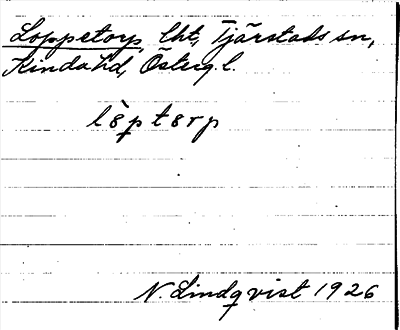 Loppetorp, lht, Tjärstads sn,
Kinda hd, Östergl.
N. Lindqvist 1926